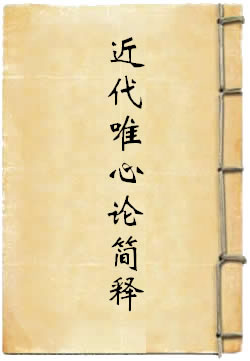 近代唯心论简释